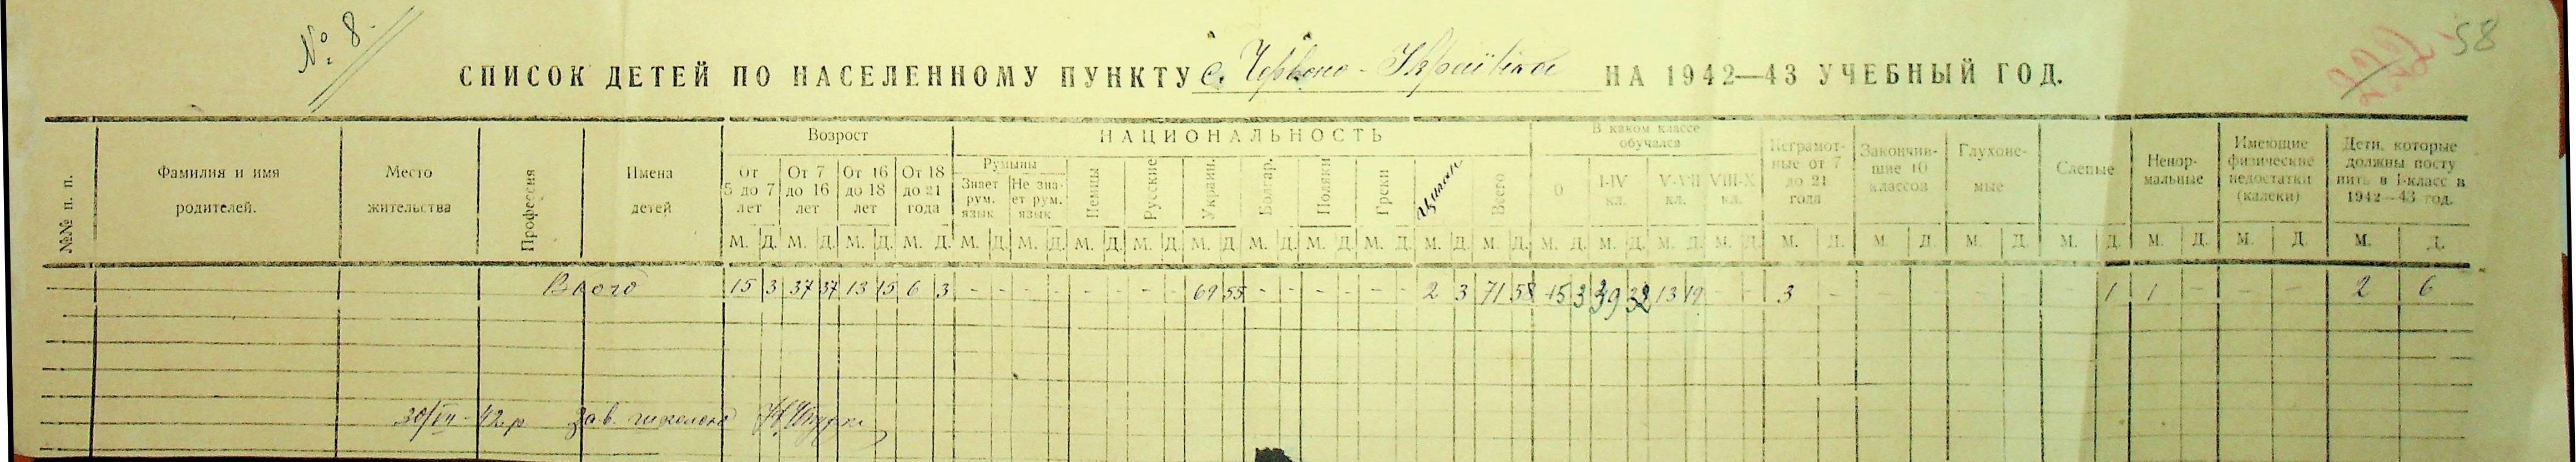 № 8.
58
СПИСОК ДЕТЕЙ ПО НАСЕЛЕННОМУ ПУНКТУ с. Червоно-Українка НА 1942—43 УЧЕБНЫЙ ГОД.
№№ п. п.
Фамилия и имя родителей.
Место жительства
Профессия
Имена детей
Возрост
От 5 до 7 лет
От 7 до 16 лет
От 16 до 18 лет
От 18 до 21 года
НАЦИОНАЛЬНОСТЬ
Румыны
Знает рум. язык
Не знает рум. язык
Немцы
Русские
Украин.
Болгар.
Поляки
Грески
Цигани
Всего
В каком классе обучался
0
I-IV кл.
V-VII кл.
VIII-X кл.
Неграмотные от 7 до 21 года
Закончившие 10 классов
Глухоие-мые
Слепые
Ненормальные
Имеющие физические недостатки (калеки)
Дети, которые должны посту пить в I-класс в 1942—43 год.
М. Д. М. Д. М. Д. М. Д. М. Д. М. Д. М. Д. М. Д. М. Д. М. Д. М. Д. М. Д. М. Д. М. Д. М. Д. М. Д. М. Д. М. Д. М. Д. М. Д. М. Д. М. Д. М. Д. М. Д. М. Д.
Всего 15 3 37 37 13 15 6 3 - - - - - - - - 69 55 - - - - - - 2 3 71 58 15 3 39 32 13 19 - - 3 - - - - - - 1 1 - - - 2 6
30/VII-42 р зав. школою